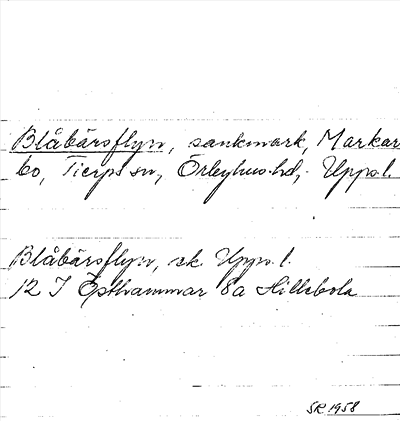 Blåbärsflyn, sankmark, Markar
bo, Tierps sn, Örbyhus hd, Upps.l.
Blåbärsflyn, sk. Upps.l.
12 I Östhammar 8a Hillebola
SR 1958